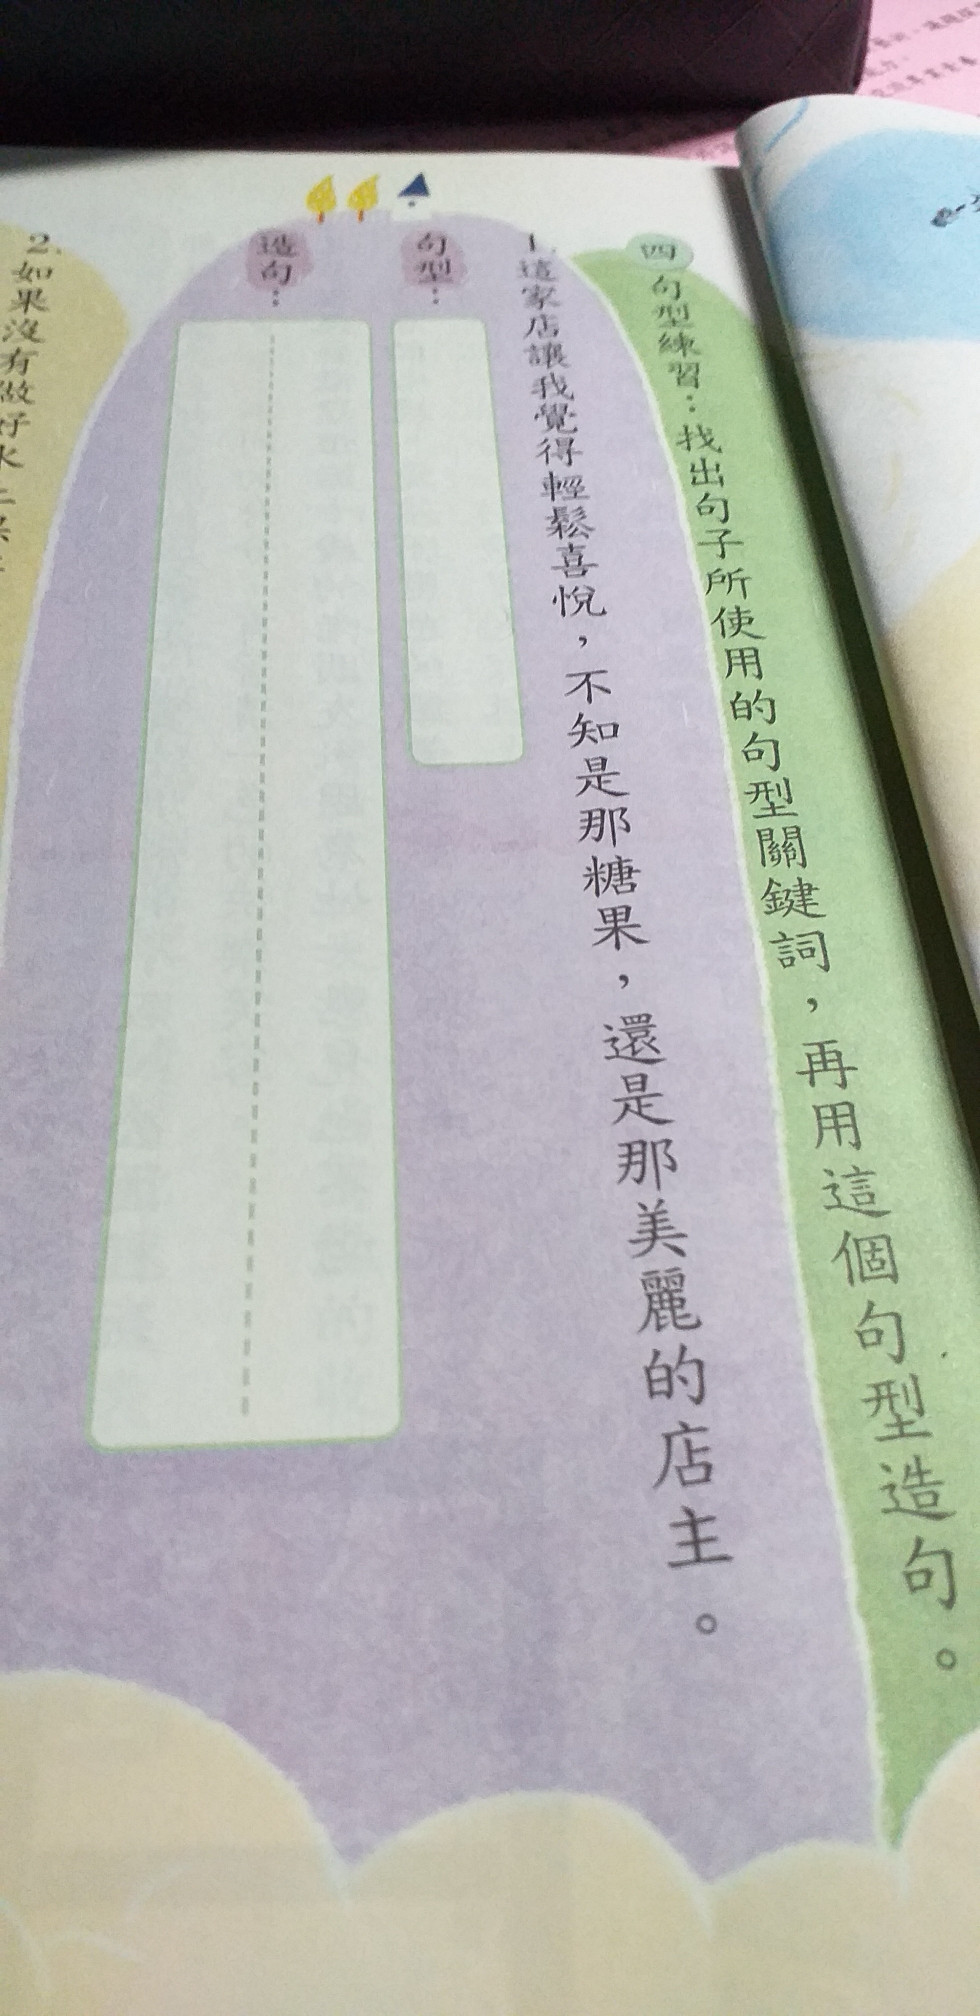 四 句型練習：找出句子所使用的句型關鍵詞，再用這個句型造句。
1. 這家店讓我覺得輕鬆喜悅，不知是那糖果，還是那美麗的店主。
句型：
造句：
2. 如果沒有做好水土